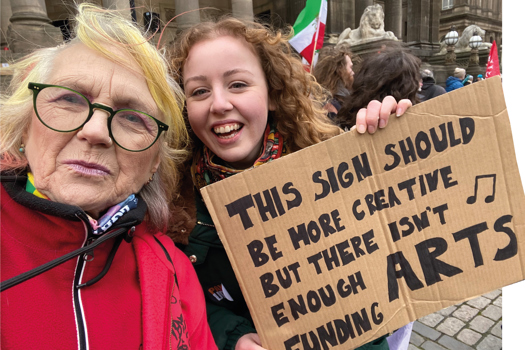 THIS SIGN SHOULD
BE MORE CREATIVE
BUT THERE ISN'T
ENOUGH ARTS
FUNDING